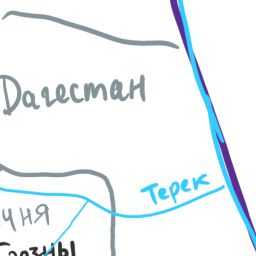 Дагестан
Терек
чня
Грозны